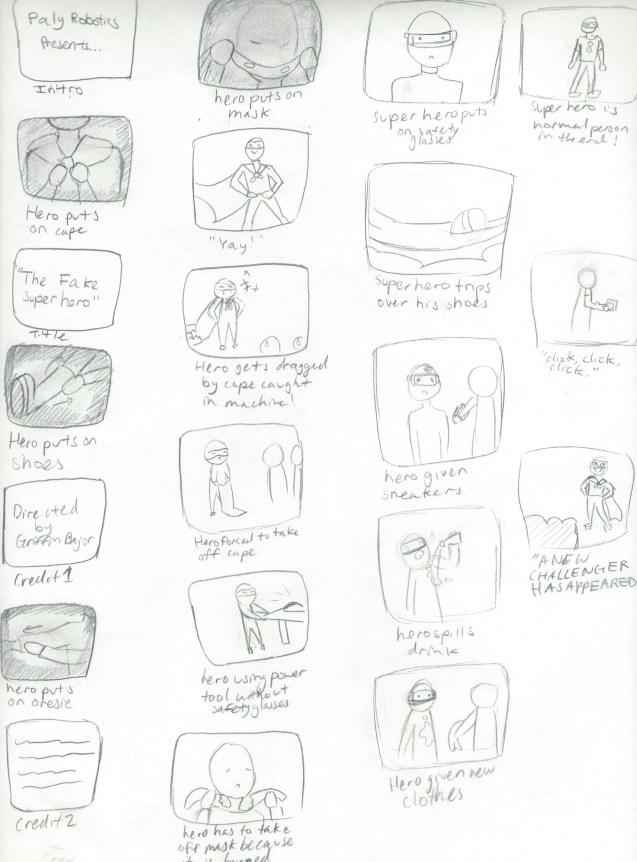 Paly Robotics
Presents...
Intro
Hero puts
on cape
"The Fake
Superhero"
Title
Hero puts on
shoes
Directed
by
Griffin Bajor
Credit 1
hero puts
on onesie
Credit 2
hero puts on
mask
"Yay!"
Hero gets dragged
by cape caught
in machine!
Hero forced to take
off cape
hero using power
tool without
safety glasses
hero has to take
off mask because
it is burned
Super hero puts
on safety
glasses
Superhero trips
over his shoes
hero given
sneakers
hero spills
drink
Hero given new
clothes
Super hero is
normal person
in the end!
"click, click,
click."
"A NEW
CHALLENGER
HAS APPEARED